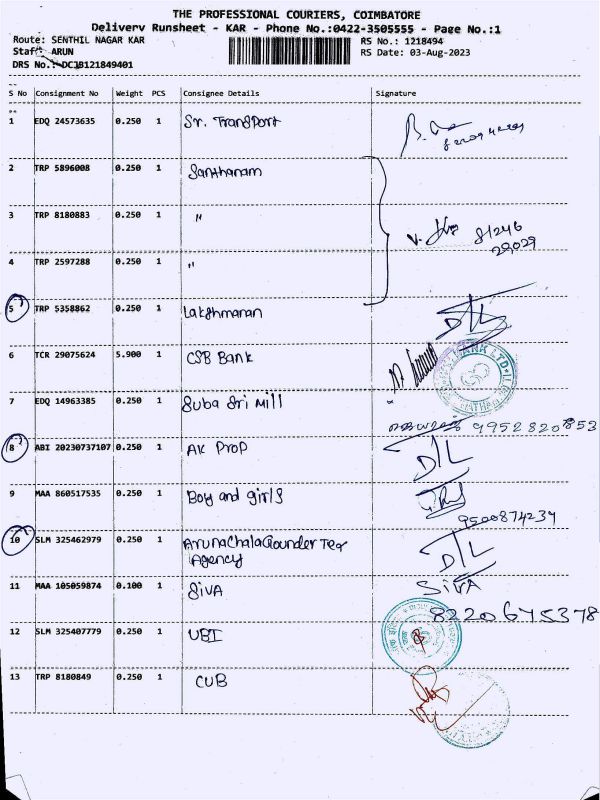 THE PROFESSIONAL COURIERS, COIMBATORE
Delivery Runsheet - KAR - Phone No.:0422-3505555 - Page No.:1
Route: SENTHIL NAGAR KAR RS No.: 1218494
Staff: ARUN RS Date: 03-Aug-2023
DRS No.: DCJB121849401
S No Consignment No Weight PCS Consignee Details Signature
1 EDQ 24573635 0.250 1 Sr. Transport
2 TRP 5896008 0.250 1 Santhanam
3 TRP 8180883 0.250 1 "
V. 81246
29029
4 TRP 2597288 0.250 1 "
5 TRP 5358862 0.250 1 Lakshmanan D/L
6 TCR 29075624 5.900 1 CSB Bank
7 EDQ 14963385 0.250 1 Suba Sri Mill
9952820853
8 ABI 20230737107 0.250 1 AK Prop D/L
9 MAA 860517535 0.250 1 Boy and girls
9500874234
10 SLM 325462979 0.250 1 Arunachala Gounder Tex D/L
Agency
11 MAA 105059874 0.100 1 Siva SIVA
8220675378
12 SLM 325407779 0.250 1 UBI
13 TRP 8180849 0.250 1 CUB